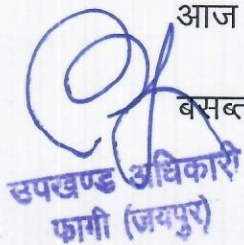 आज
बसब्त
उपखण्ड अधिकारी
फागी (जयपुर)